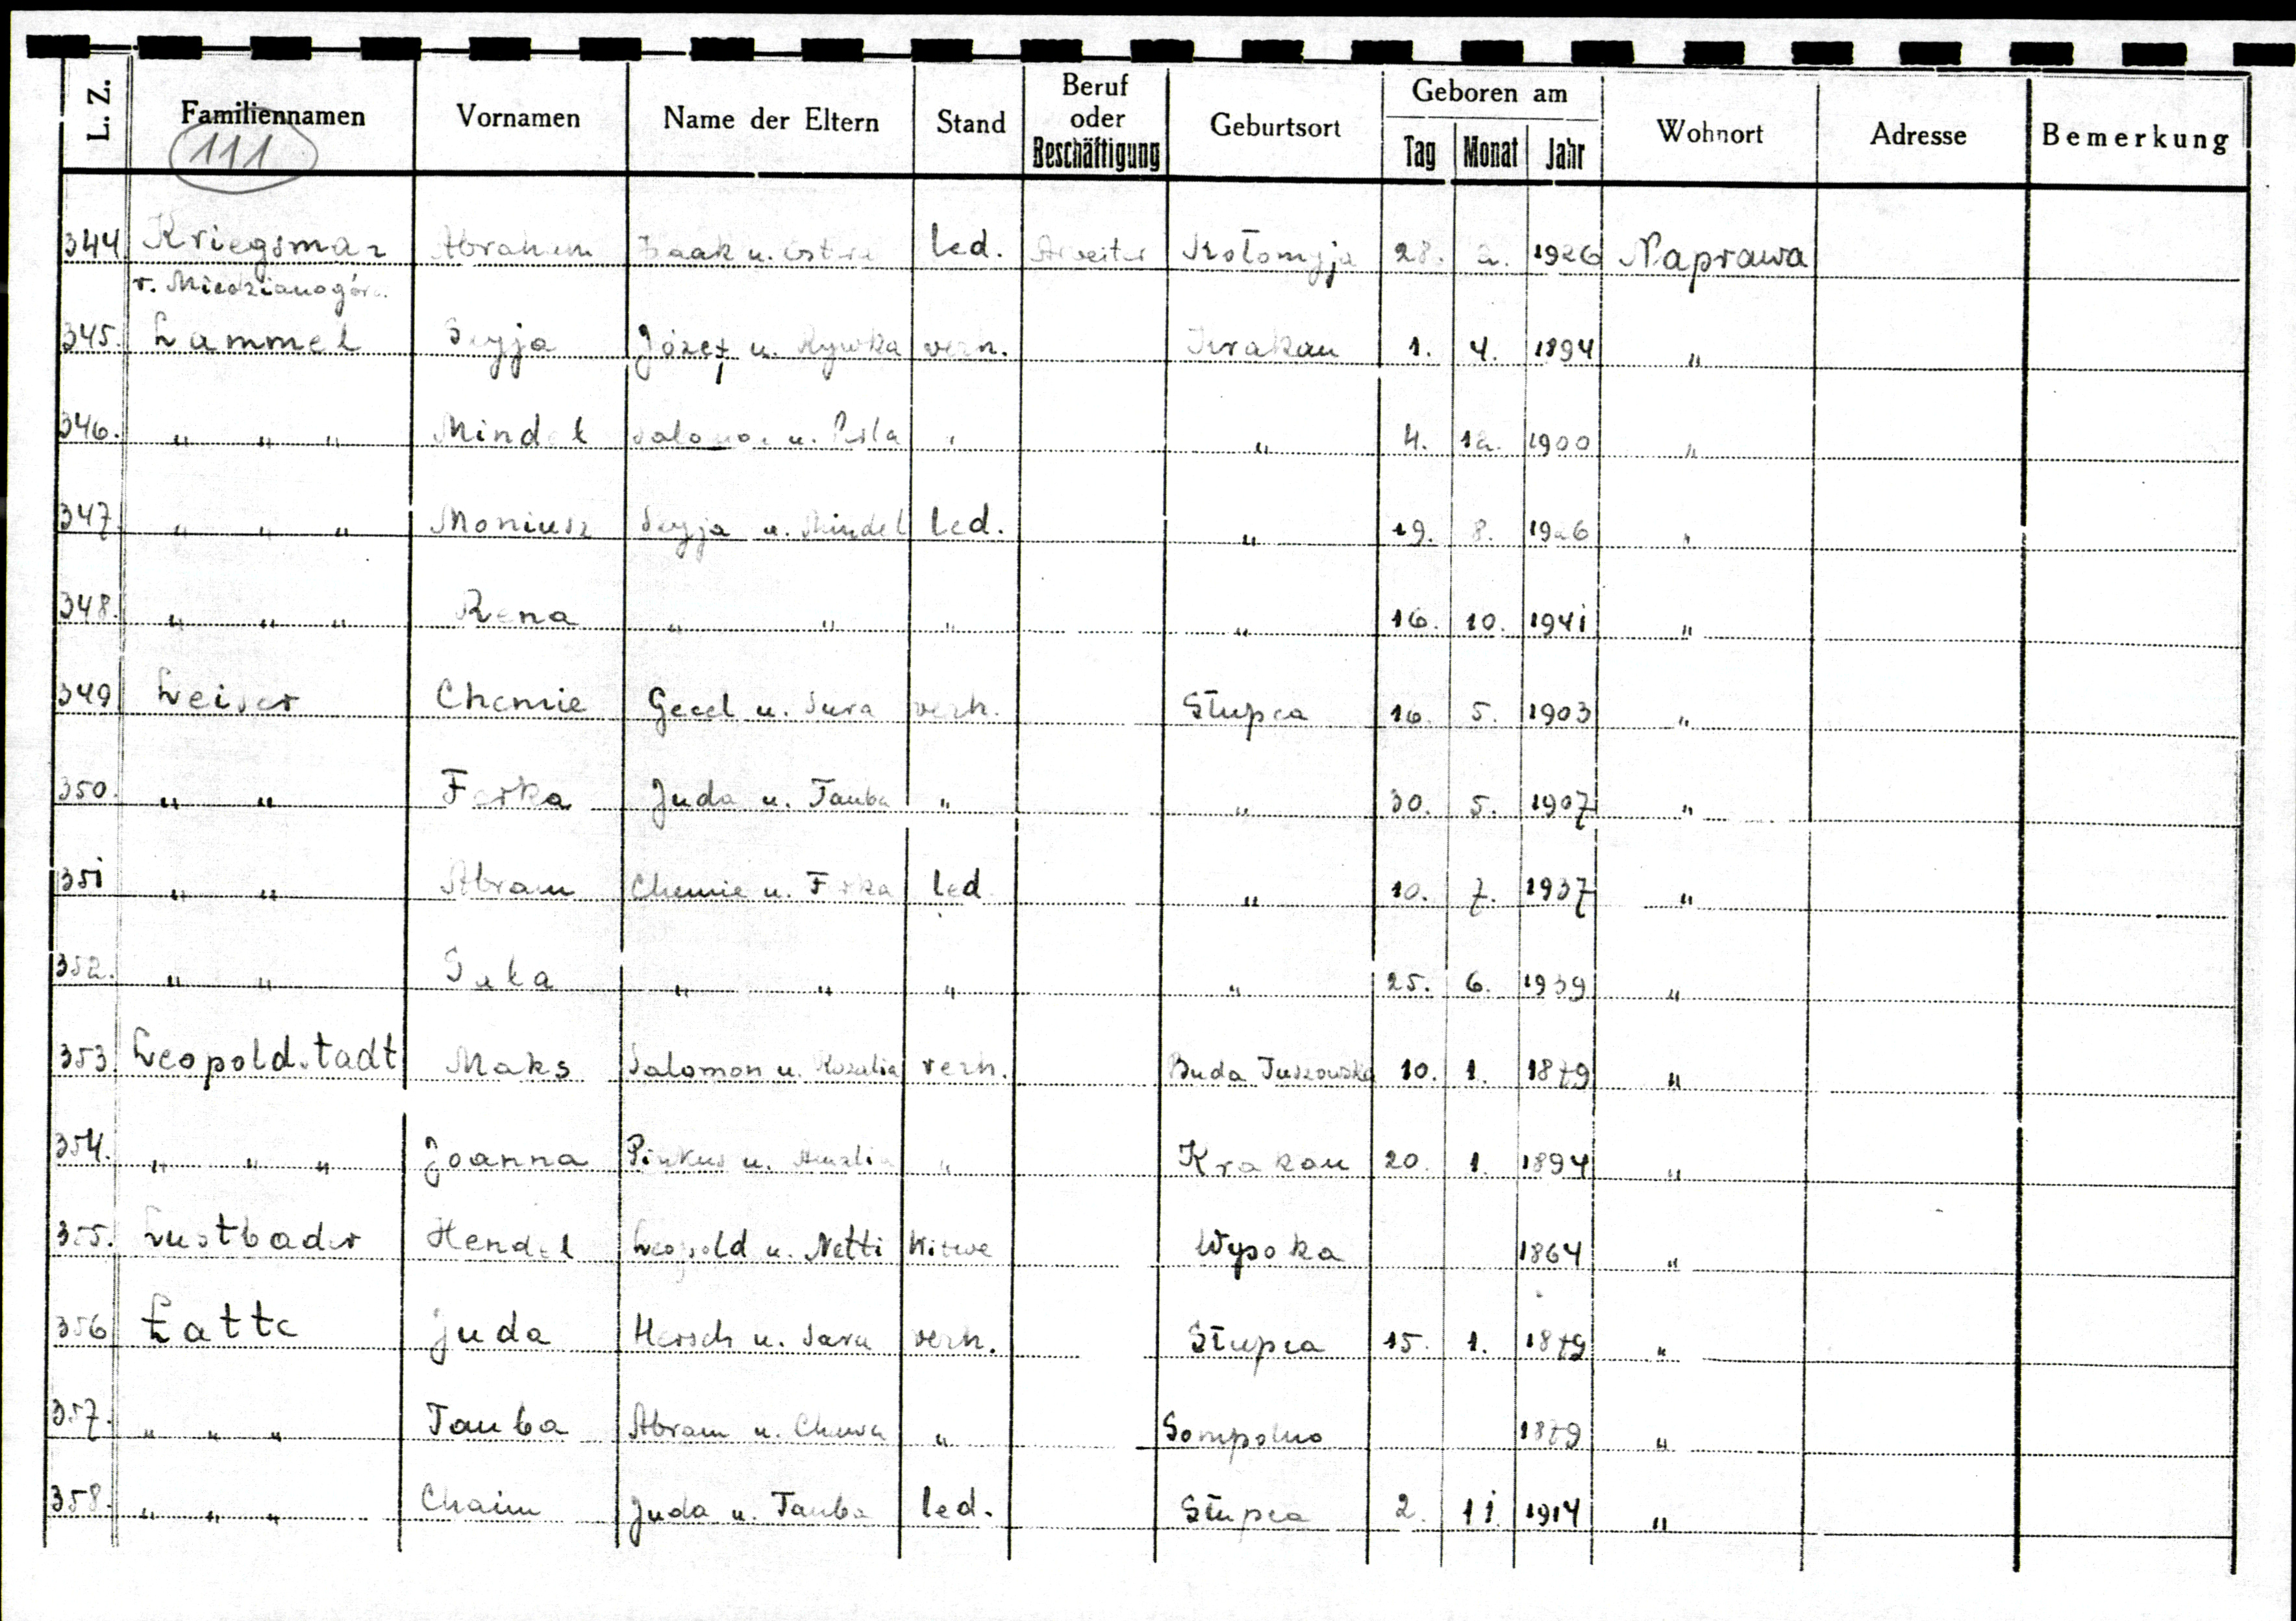 L. Z. Familiennamen Vornamen Name der Eltern Stand Beruf oder Beschäftigung Geburtsort Geboren am Tag Monat Jahr Wohnort Adresse Bemerkung
111
344 Kriegsman Abraham Izaak u. led. Arbeiter Kołomyja 28. 2. 1926 Naprawa
v. Miedzianogóra
345. Lammel Józef u. Rywka verh. Krakau 1. 4. 1894 "
346. " " " Mindel Salomon u. " " 4. 12. 1900 "
347. " " " Moniusz u. Mindel led. " 19. 8. 1926 "
348. " " " Rena " " " " 16. 10. 1941 "
349 Leiser Chemie Gecel u. Sura verh. Słupca 16. 5. 1903 "
350. " " Juda u. Tauba " " 30. 5. 1907 "
351 " " Abram Chemie u. led. " 10. 7. 1937 "
352. " " " " " " 25. 6. 1939 "
353. Leopoldstadt Maks Salomon u. Rozalia verh. Buda Tuszowska 10. 1. 1879 "
354. " " " Joanna Pinkus u. Amalia " Krakau 20. 1. 1894 "
355. Lustbader Hendel Leopold u. Netti Witwe Wysoka 1864 "
356 Łatte Juda Hersch u. Sara verh. Słupca 15. 1. 1879 "
357. " " " Tauba Abram u. " Sompolno 1879 "
358. " " " Chaim Juda u. Tauba led. Słupca 2. 11. 1914 "